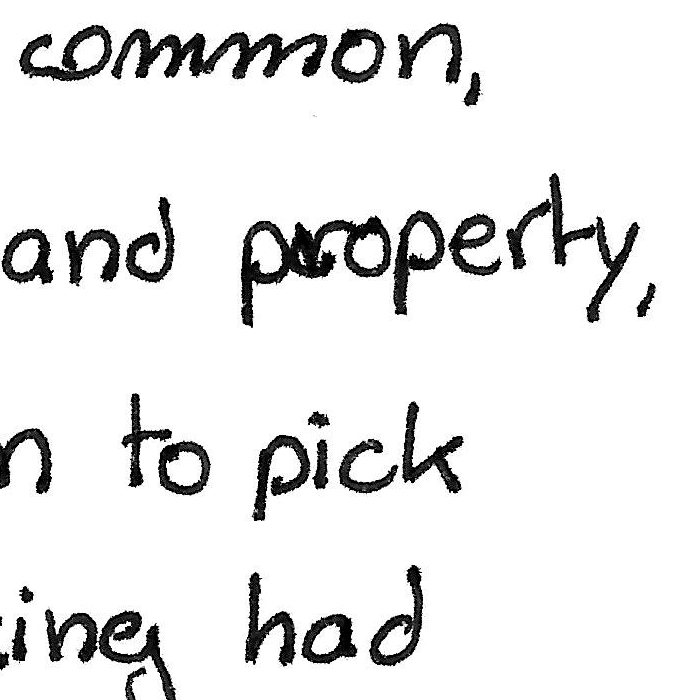 common,
and property,
to pick
had